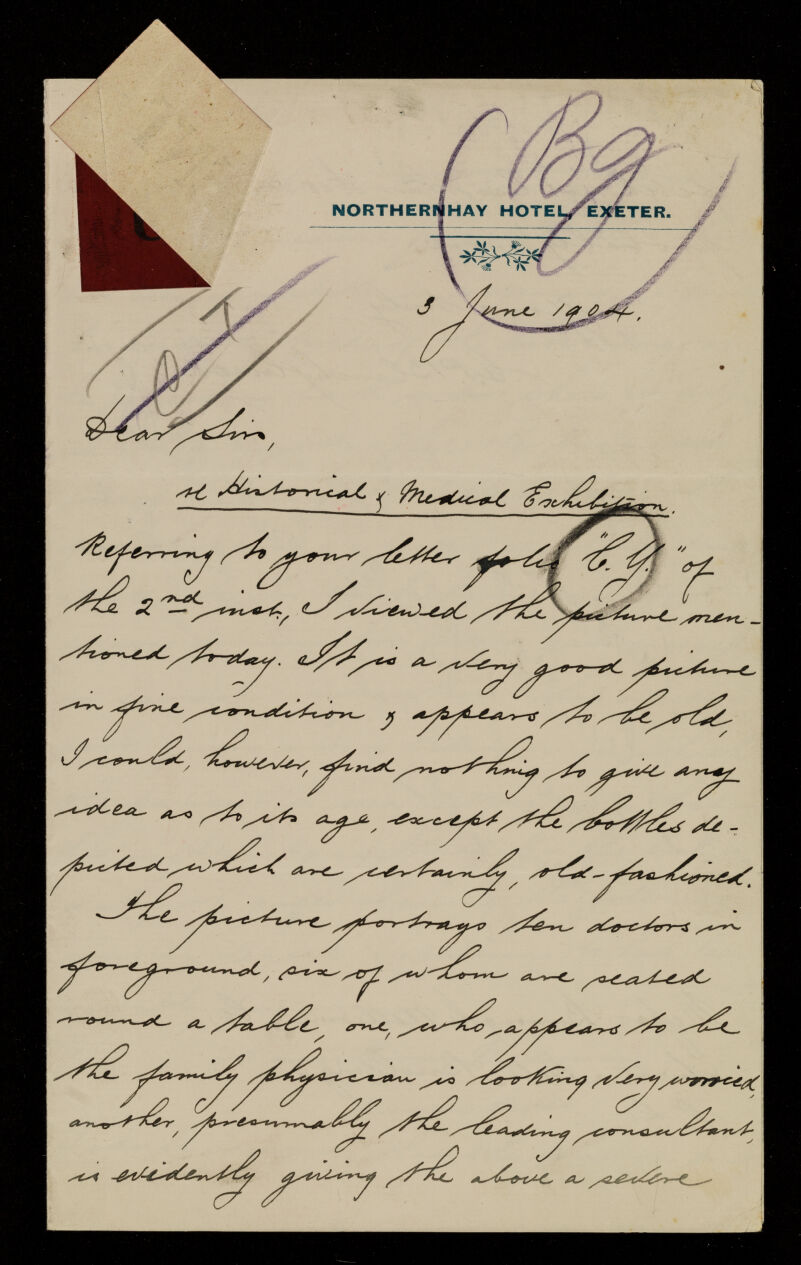 Bg
NORTHERNHAY HOTEL, EXETER.
3 June 1904.
Dear Sirs,
re Historical & Medical Exhibition.
Referring to your letter folio "C.Y." of
the 2nd inst., I viewed the picture men-
tioned today. It is a very good picture
in fine condition & appears to be old,
I could, however, find nothing to give any
idea as to its age, except the bottles de-
picted which are certainly, old-fashioned.
The picture portrays ten doctors in
foreground, six of whom are seated
round a table, one, who appears to be
the family physician is looking very worried,
another, presumably the leading consultant,
is evidently giving the above a severe